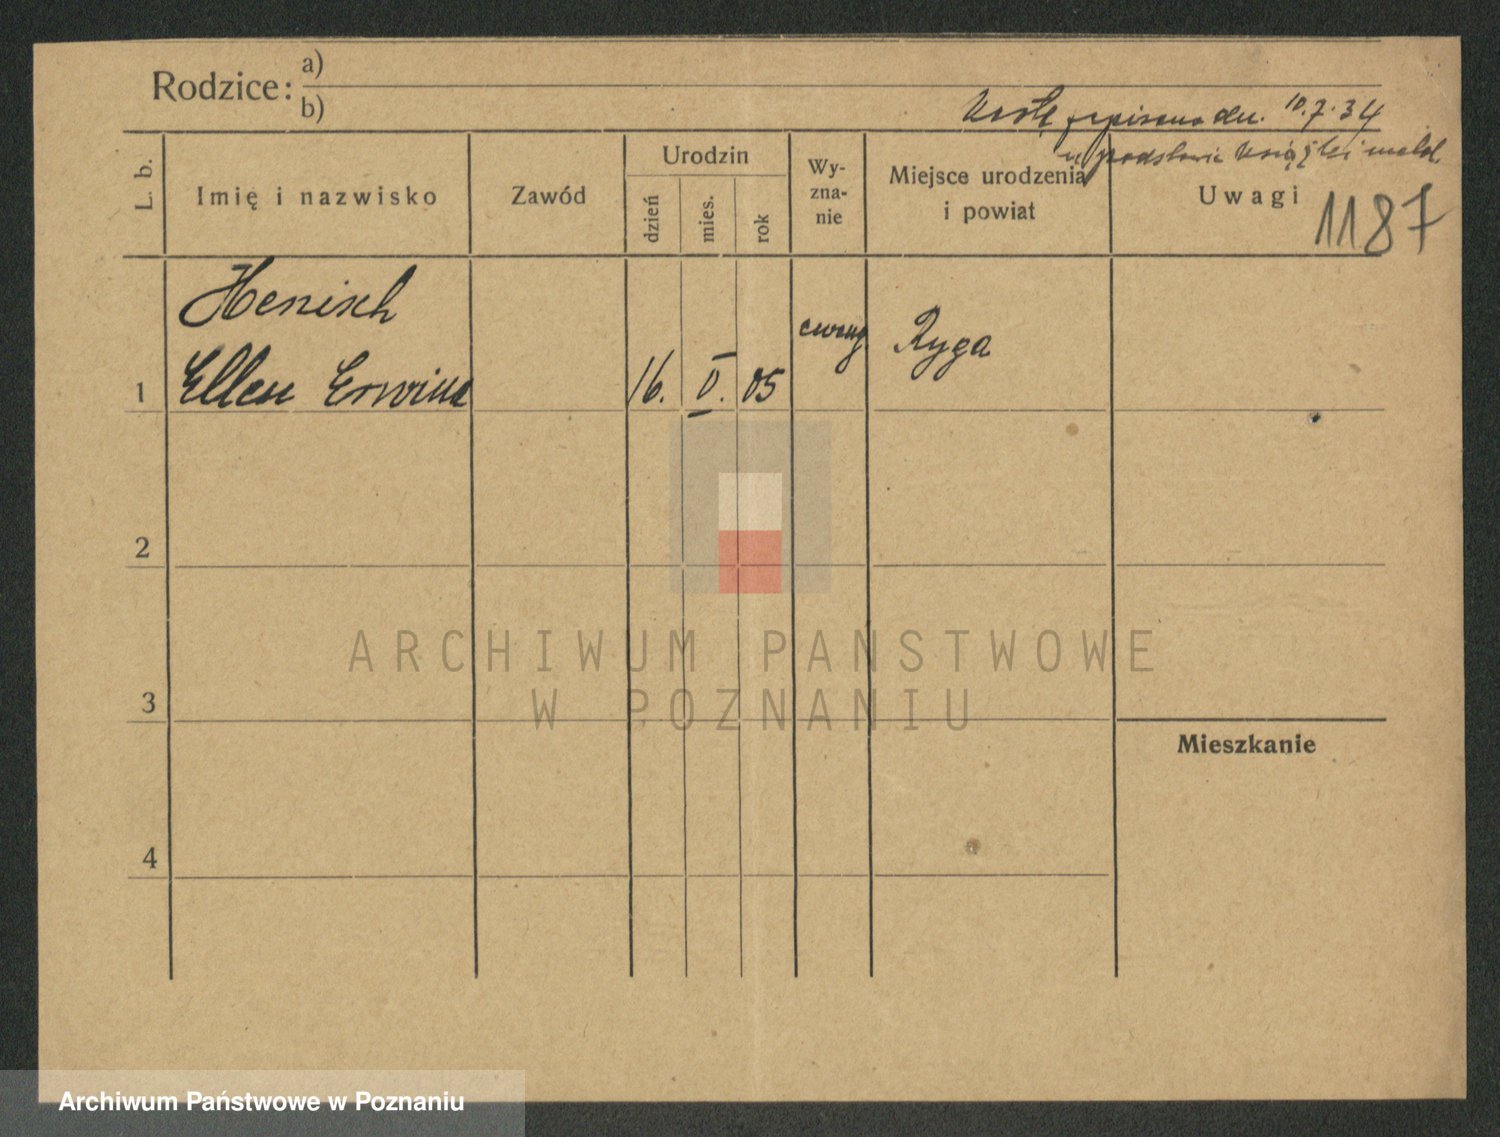 Rodzice: a)
b)
Kartę spisano dn. 10.7.34
n podstawie książki meld.
L. b.
Imię i nazwisko
Zawód
Urodzin
dzień
mies.
rok
Wy-
zna-
nie
Miejsce urodzenia
i powiat
Uwagi
1187
Henisch
1 Ellen Erwina 16. II. 05 ewang Ryga
2
3
Mieszkanie
4
ARCHIWUM PAŃSTWOWE
W POZNANIU
Archiwum Państwowe w Poznaniu